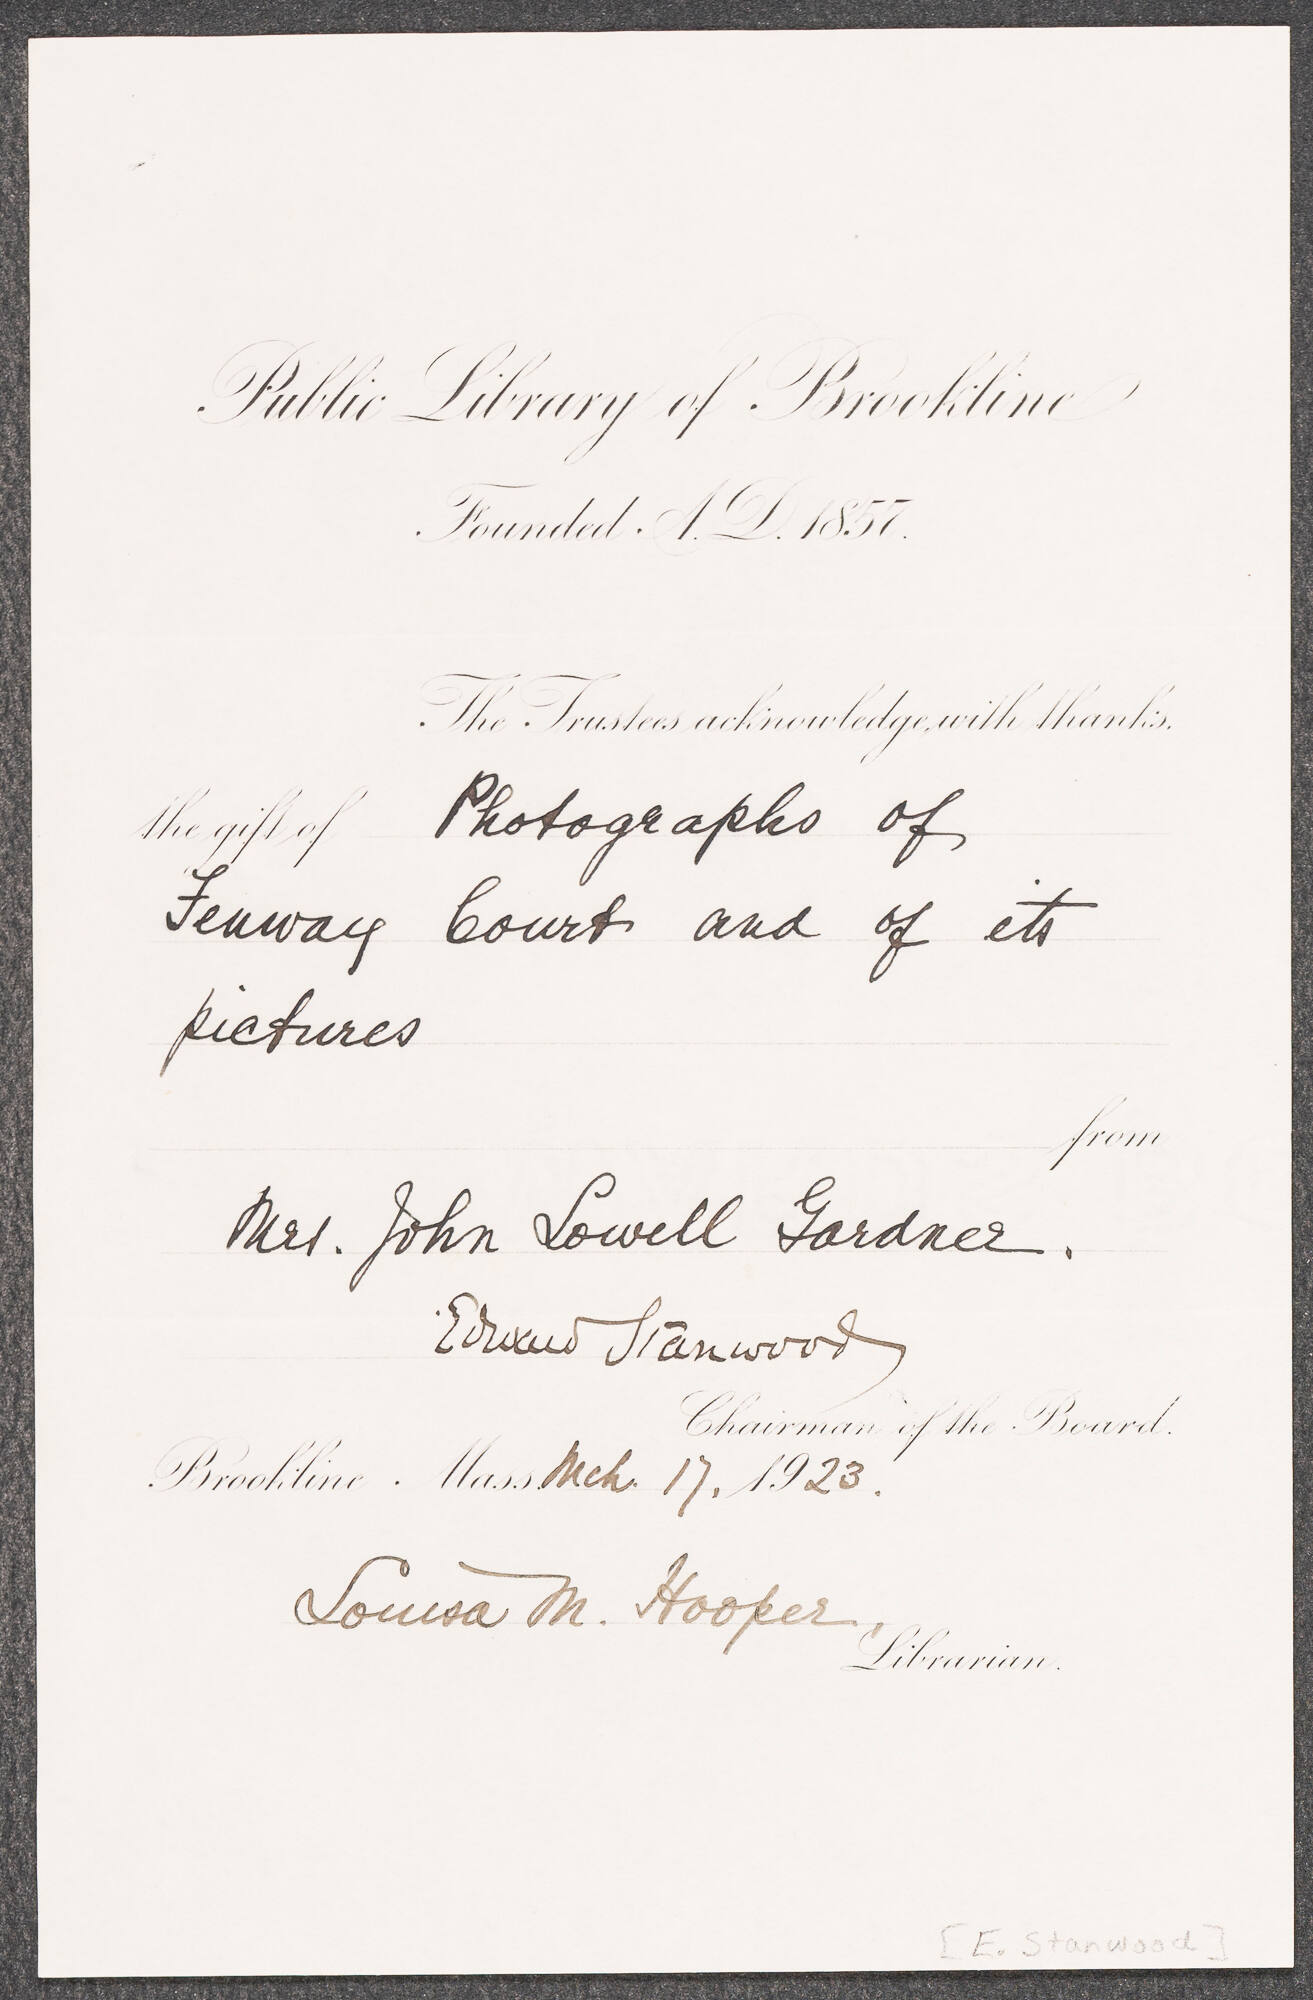 Public Library of Brookline
Founded A.D. 1857.
The Trustees acknowledge, with thanks,
the gift of Photographs of
Fenway Court and of its
pictures
from
Mrs. John Lowell Gardner.
Edward Stanwood
Chairman of the Board.
Brookline, Mass. Mch. 17, 1923.
Louisa M. Hooper,
Librarian.
[E. Stanwood]